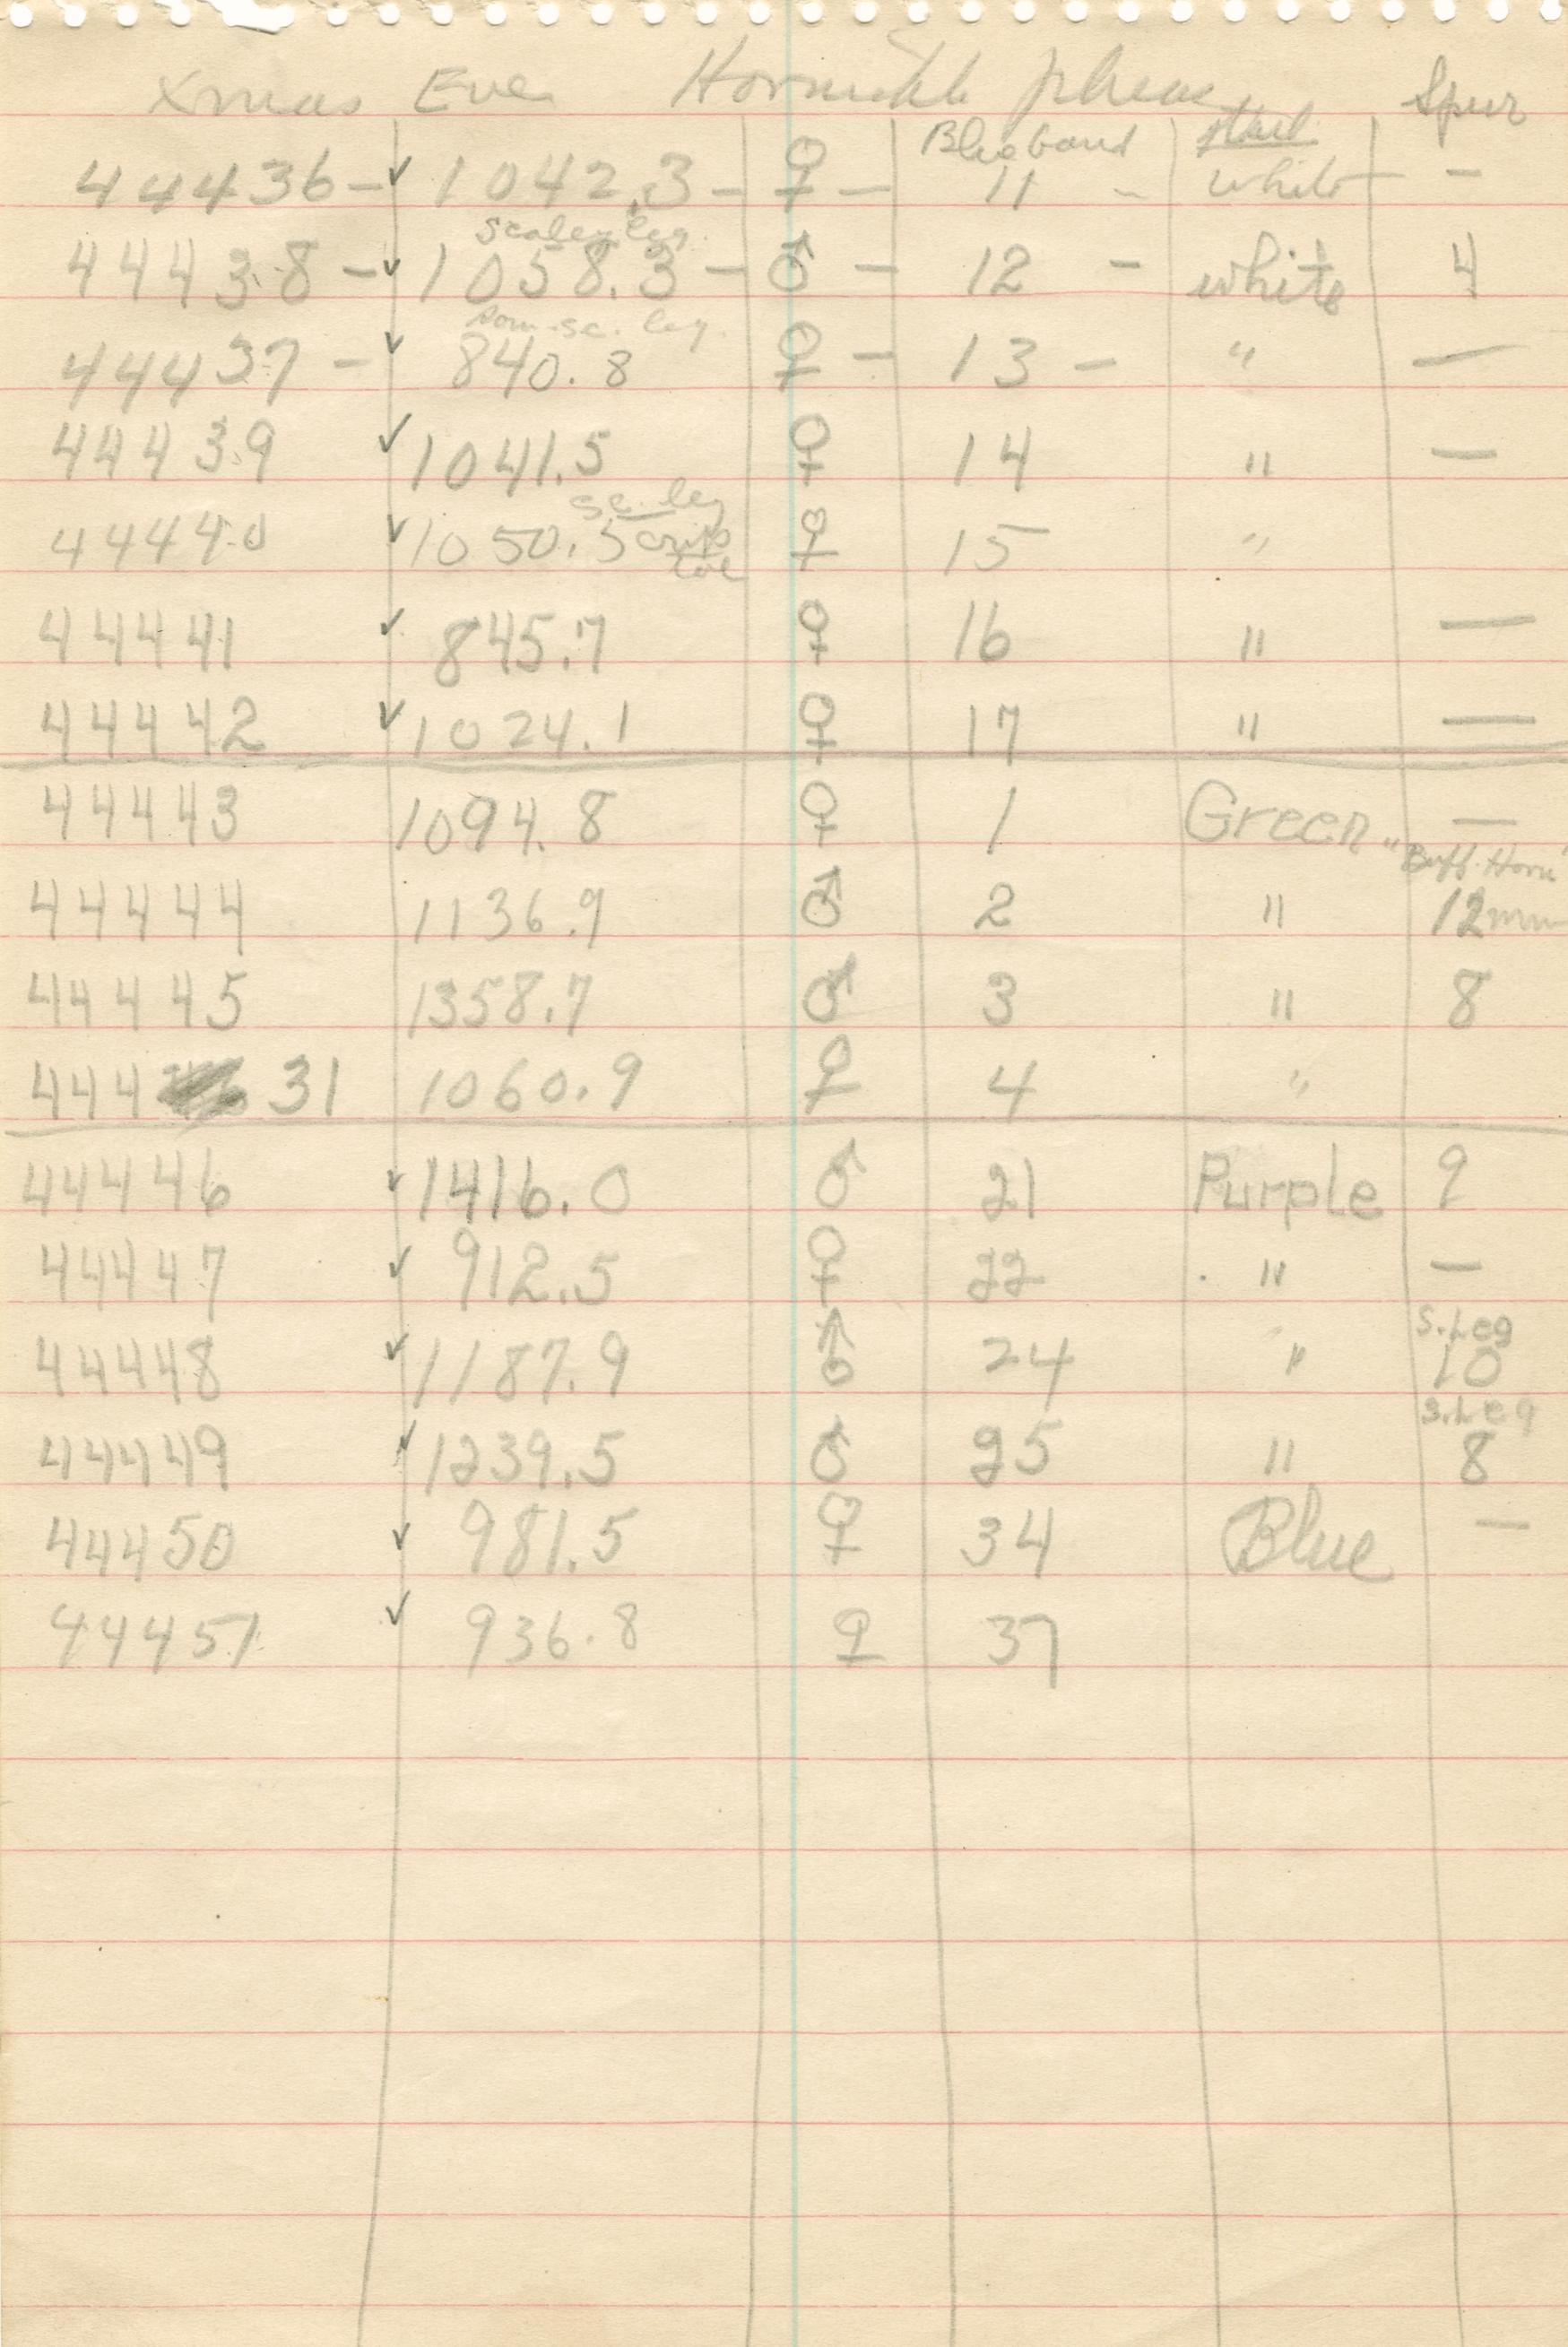 Xmas Eve Spur
Blue band
44436 – ✓ 1042.3 – ♀ – 11 – white – –
Scaley leg.
44438 – ✓ 1058.3 – ♂ – 12 – white 4
sc. leg.
44437 – ✓ 840.8 ♀ – 13 – " —
44439 ✓ 1041.5 ♀ 14 " —
sc. leg
44440 ✓ 1050.5 ♀ 15 "
toe
44441 ✓ 845.7 ♀ 16 " —
44442 ✓ 1024.1 ♀ 17 " —
44443 1094.8 ♀ 1 Green —
"Buff. Horn"
44444 1136.9 ♂ 2 " 12mm
44445 1358.7 ♂ 3 " 8
444 31 1060.9 ♀ 4 "
44446 ✓ 1416.0 ♂ 21 Purple 9
44447 ✓ 912.5 ♀ 22 " —
S. Leg
44448 ✓ 1187.9 ♂ 24 " 10
S. Leg
44449 ✓ 1239.5 ♂ 25 " 8
44450 ✓ 981.5 ♀ 34 Blue —
44451 ✓ 936.8 ♀ 37